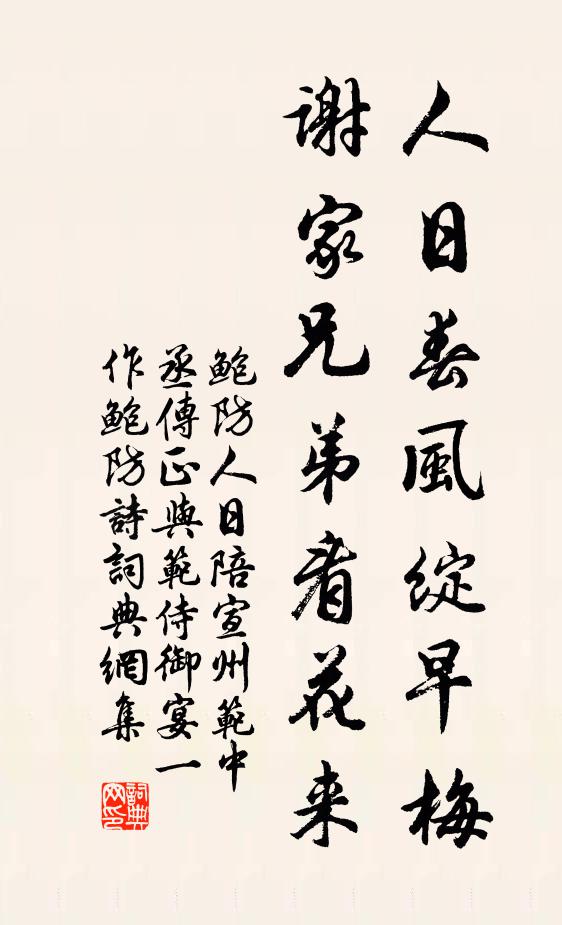 人日春風綻早梅
謝家兄弟看花来
鲍防人日陪宣州範中
丞傳正與範侍御宴一
作鲍防詩詞典網集
詞典
网印